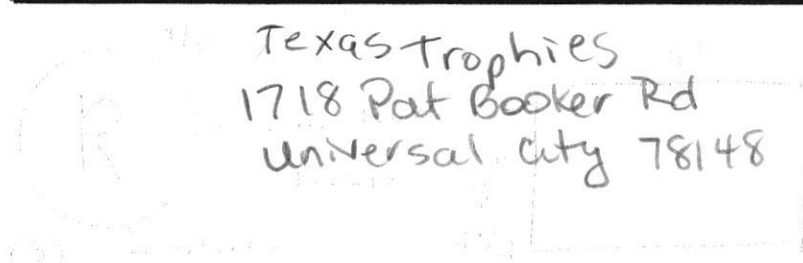 Texas Trophies
1718 Pat Booker Rd
Universal City 78148